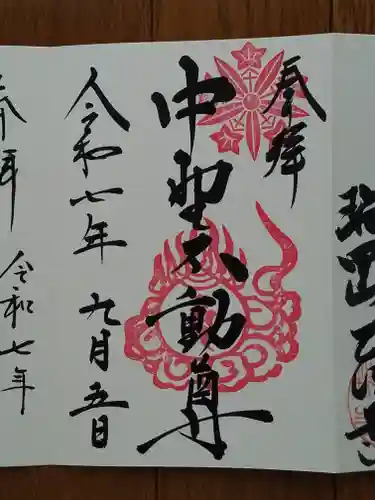 奉拝
中野不動尊
令和七年
九月五日
奉拝
令和七年